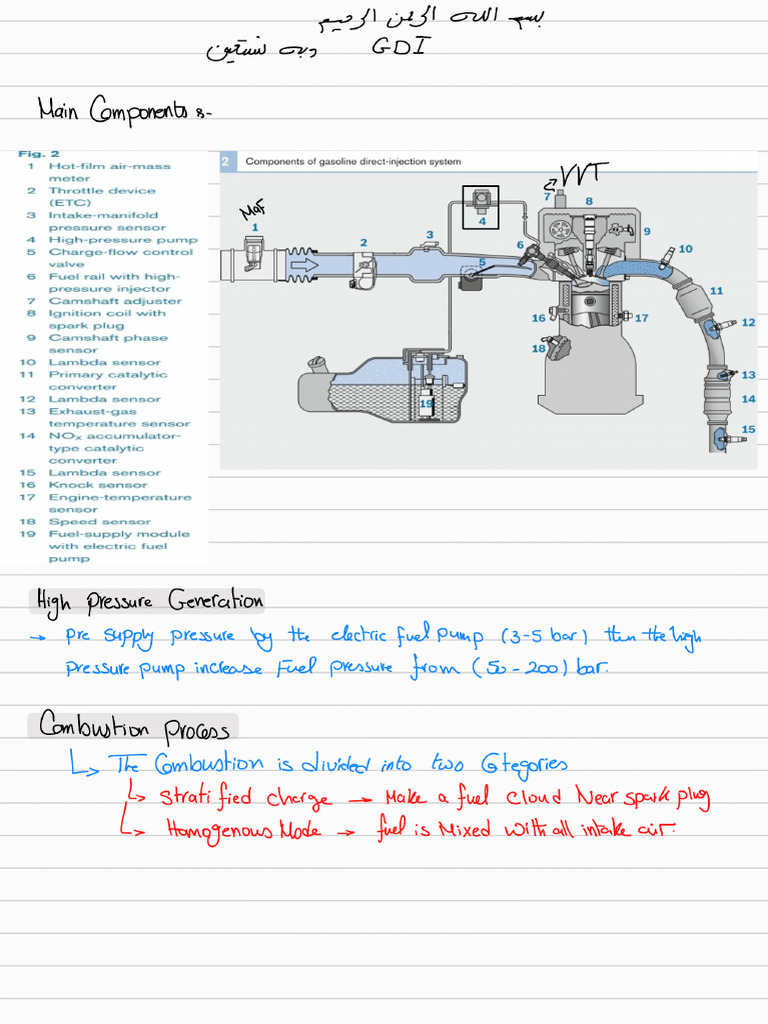 بسم الله الرحمن الرحيم
وبه نستعين GDI
Main Components :-
Fig. 2
1 Hot-film air-mass
meter
2 Throttle device
(ETC)
3 Intake-manifold
pressure sensor
4 High-pressure pump
5 Charge-flow control
valve
6 Fuel rail with high-
pressure injector
7 Camshaft adjuster
8 Ignition coil with
spark plug
9 Camshaft phase
sensor
10 Lambda sensor
11 Primary catalytic
converter
12 Lambda sensor
13 Exhaust-gas
temperature sensor
14 NOx accumulator-
type catalytic
converter
15 Lambda sensor
16 Knock sensor
17 Engine-temperature
sensor
18 Speed sensor
19 Fuel-supply module
with electric fuel
pump
2 Components of gasoline direct-injection system
VVT
MaF
1
2
3
4
5
6
7
8
9
10
11
12
13
14
15
16
17
18
19
High Pressure Generation
→ Pre supply pressure by the electric fuel pump (3-5 bar) then the high
pressure pump increase Fuel pressure from (50-200) bar.
Combustion Process
↳ The Combustion is divided into two Ctegories
↳ Stratified charge → Make a fuel cloud Near spark plug
↳ Homogenous Mode → fuel is Mixed with all intake air.